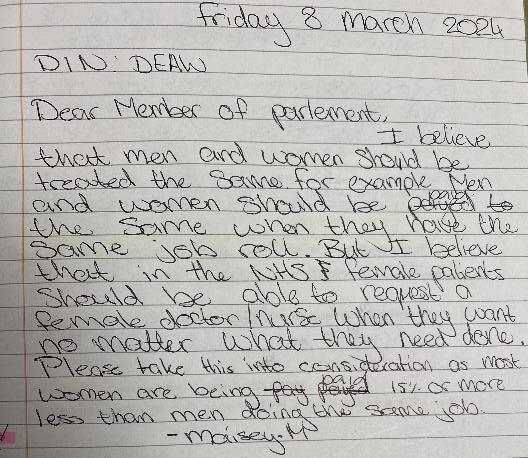 Friday 8 March 2024
DIN: DEAW
Dear Member of parlement,
I believe
that men and women should be
treated the same for example, Men
and women should be paid
the same when they have the
same job roll. But I believe
that in the NHS female patients
should be able to request a
female doctor/nurse when they want
no matter what they need done.
Please take this into consideration as most
women are being paid 15% or more
less than men doing the same job.
- Maisey.M